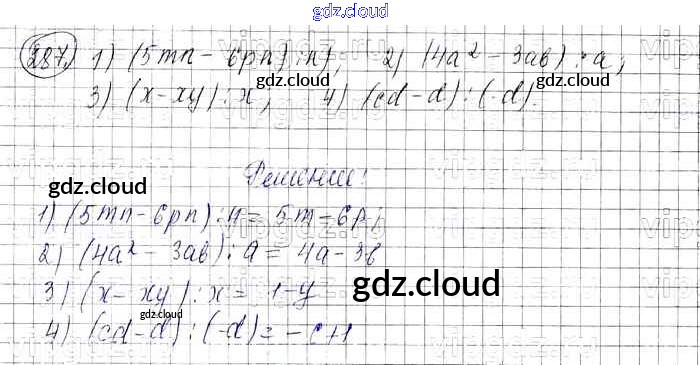 gdz.cloud
287. 1) (5mn - 6pn) : n; 2) (4a² - 3ab) : a;
gdz.cloud gdz.cloud
3) (x - xy) : x; 4) (cd - d) : (-d).
Решение:
gdz.cloud
1) (5mn - 6pn) : n = 5m - 6p;
2) (4a² - 3ab) : a = 4a - 3b
gdz.cloud
3) (x - xy) : x = 1 - y
gdz.cloud
4) (cd - d) : (-d) = -c + 1